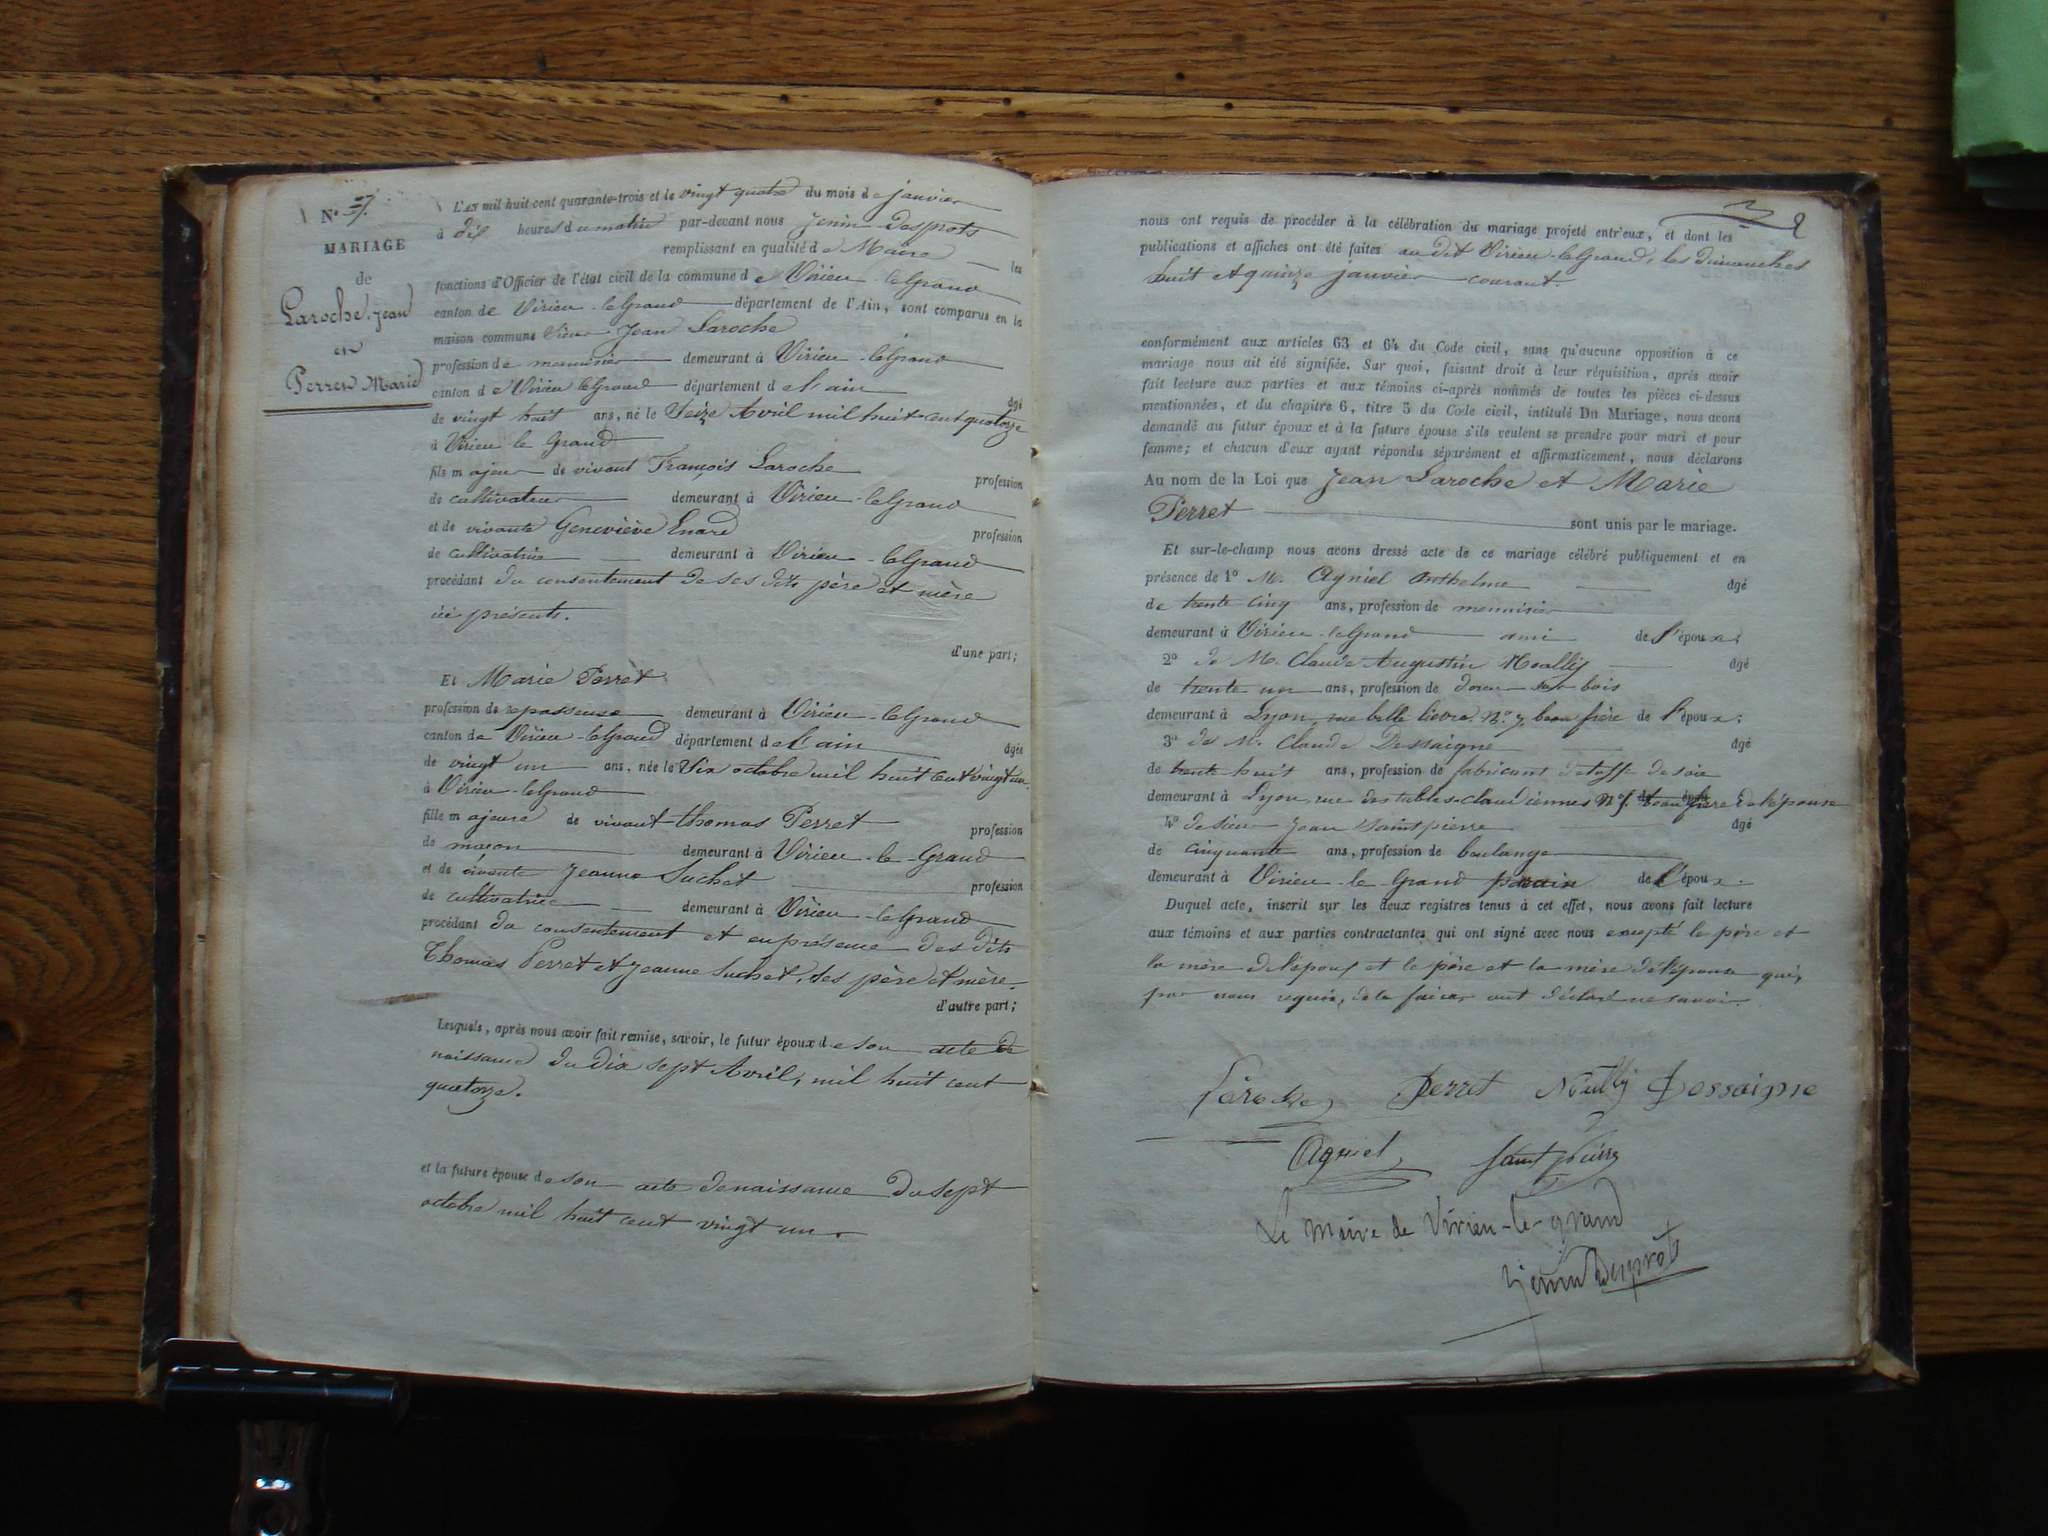 N.º
MARIAGE
de
Laroche Jean
et
Perret Marie
L'AN mil huit cent quarante-trois et le vingt quatre du mois de janvier
à dix heures du matin par-devant nous Jenin Desprots
remplissant en qualité de Maire les
fonctions d'Officier de l'état civil de la commune de Virieu-le Grand
canton de Virieu-le Grand département de l'Ain, sont comparus en la
maison commune Sieur Jean Laroche
profession de menuisier demeurant à Virieu-le Grand
canton de Virieu le Grand département de l'ain
âgé
de vingt huit ans, né le Seize Avril mil huit cent quatorze
à Virieu le Grand
fils majeur de vivant François Laroche
profession
de cultivateur demeurant à Virieu-le Grand
et de vivante Geneviève Enard
profession
de cultivatrice demeurant à Virieu-le Grand
procédant du consentement de ses dits père et mère
ici présents.
d'une part;
Et Marie Perret
profession de repasseuse demeurant à Virieu-le Grand
canton de Virieu-le Grand département de l'ain âgée
de vingt un ans, née le Six octobre mil huit cent vingt un
à Virieu-le Grand
fille majeure de vivant thomas Perret profession
de maçon demeurant à Virieu-le-Grand
et de vivante Jeanne Suchet profession
de cultivatrice demeurant à Virieu-le Grand
procédant du consentement et en présence des dits
Thomas Perret et Jeanne Suchet, ses père et mère.
d'autre part;
Lesquels, après nous avoir fait remise, savoir, le futur époux de son acte de
naissance du dix sept Avril, mil huit cent
quatorze.
et la future épouse de son acte de naissance du sept
octobre mil huit cent vingt un.
2
nous ont requis de procéder à la célébration du mariage projeté entr'eux, et dont les
publications et affiches ont été faites au dit Virieu-le Grand, les dimanches
huit et quinze janvier courant.
conformément aux articles 63 et 64 du Code civil, sans qu'aucune opposition à ce
mariage nous ait été signifiée. Sur quoi, faisant droit à leur réquisition, après avoir
fait lecture aux parties et aux témoins ci-après nommés de toutes les pièces ci-dessus
mentionnées, et du chapitre 6, titre 5 du Code civil, intitulé Du Mariage, nous avons
demandé au futur époux et à la future épouse s'ils veulent se prendre pour mari et pour
femme; et chacun d'eux ayant répondu séparément et affirmativement, nous déclarons
Au nom de la Loi que Jean Laroche et Marie
Perret sont unis par le mariage.
Et sur-le-champ nous avons dressé acte de ce mariage célébré publiquement et en
présence de 1º M. Agniel Anthelme âgé
de trente cinq ans, profession de menuisier
demeurant à Virieu-le Grand ami de l'époux;
2º de M. Claude Augustin âgé
de trente un ans, profession de doreur sur bois
demeurant à Lyon, rue belle lievre Nº 7, beau frère de l'époux;
3º de M. Claude Dessaigne âgé
de trente huit ans, profession de fabricant d'etoffe de soie
demeurant à Lyon, rue des tables-claudiennes Nº beau frère de l'épouse
4º de sieur Jean Saintpierre âgé
de cinquante ans, profession de boulanger
demeurant à Virieu-le-Grand parrain de l'époux.
Duquel acte, inscrit sur les deux registres tenus à cet effet, nous avons fait lecture
aux témoins et aux parties contractantes qui ont signé avec nous excepté le père et
la mère de l'époux et le père et la mère de l'épouse qui,
par nous requis, de le faire, ont déclaré ne savoir.
Laroche Perret Dessaigne
Agniel Saint pierre
Le Maire de Virieu-le-grand
Jenin Desprots